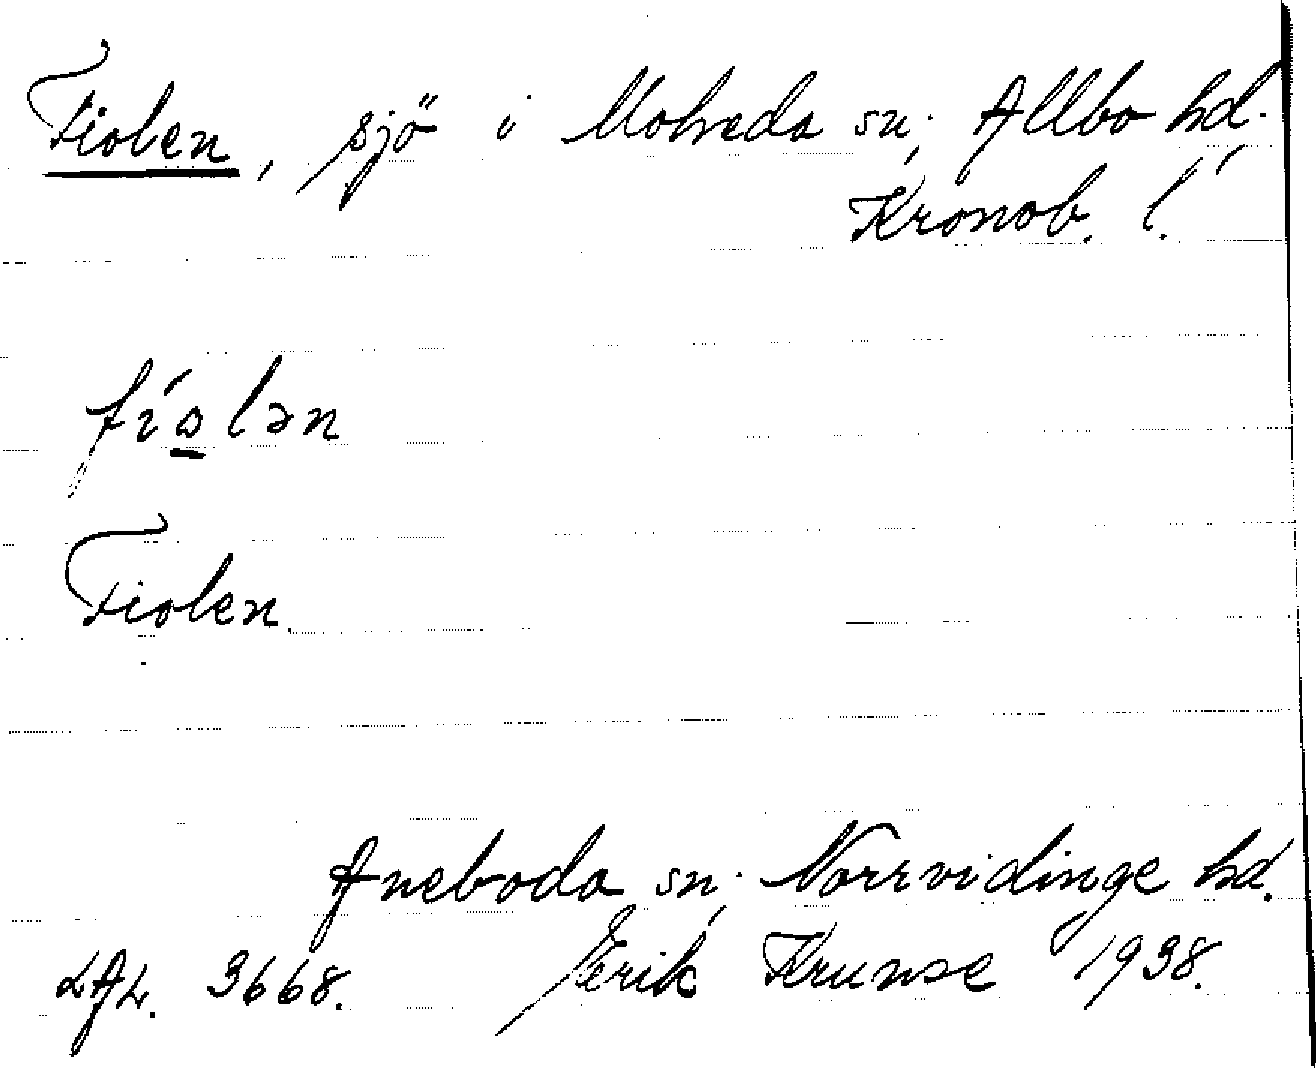 Fiolen, sjö i Moheda sn, Allbo hd.
Kronob. l.
fíɷ̱lən
Fiolen.
Aneboda sn, Norrvidinge hd.
LAL. 3668. Erik Krunse 1938.